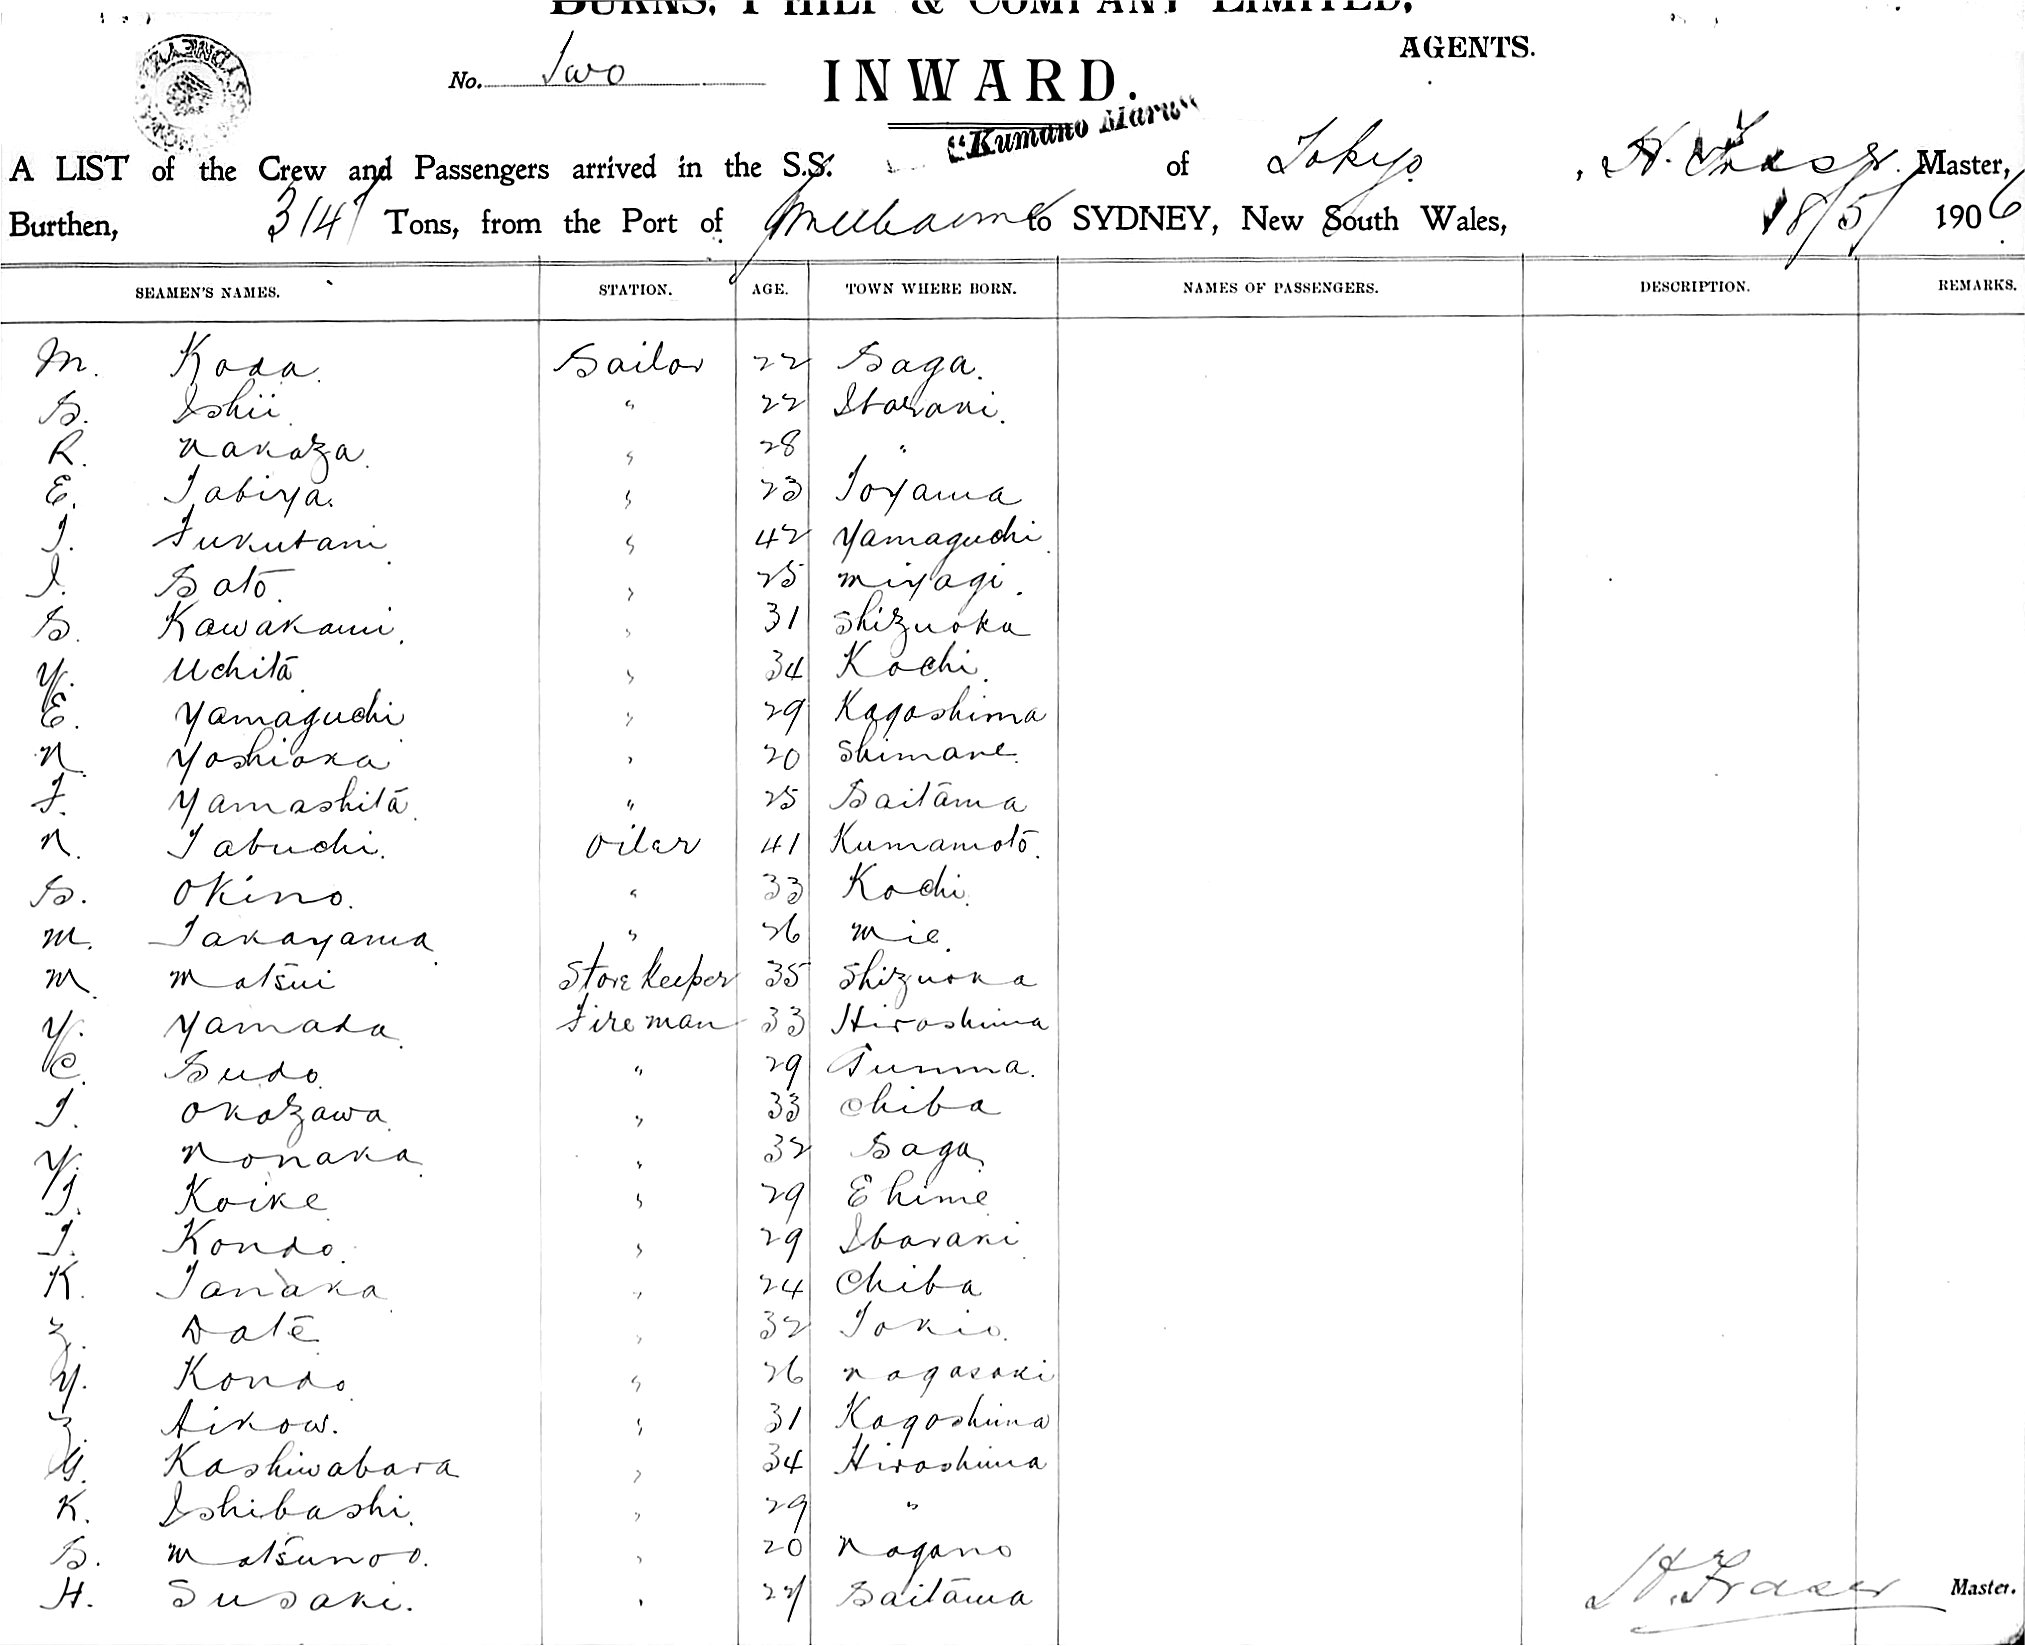 BURNS, PHILP & COMPANY LIMITED,
AGENTS.
No. Two INWARD.
A LIST of the Crew and Passengers arrived in the S.S. "Kumano Maru" of Tokyo, H. Fraser Master,
Burthen, 3147 Tons, from the Port of Melbourne to SYDNEY, New South Wales, 18/5/ 1906
SEAMEN'S NAMES. STATION. AGE. TOWN WHERE BORN. NAMES OF PASSENGERS. DESCRIPTION. REMARKS.
M. Koda. Sailor 22 Saga.
S. Ishii. " 22 Ibaraki.
R. Nakaza. " 28 "
E. Tabiya. " 23 Toyama
T. Fukutani " 42 Yamaguchi.
I. Sato. " 25 Miyagi.
S. Kawakami. " 31 Shizuoka
Y. Uchita " 34 Kochi.
E. Yamaguchi " 29 Kagoshima
N. Yoshioka " 20 Shimane.
F. Yamashita. " 25 Saitama
N. Tabuchi. Oiler 41 Kumamoto.
S. Okino. " 33 Kochi.
M. Takayama " 26 Mie.
M. Matsui Store Keeper 35 Shizuoka
Y. Yamada. Fireman 33 Hiroshima
C. Sudo. " 29 Gunma.
T. Okazawa. " 33 Chiba
Y. Nonaka. " 32 Saga.
T. Koike. " 29 Ehime
T. Kondo. " 29 Ibaraki
K. Tanaka " 24 Chiba
Z. Date " 32 Tokio.
Y. Kondo. " 26 Nagasaki
Z. Aikow. " 31 Kagoshima
G. Kashiwabara " 34 Hiroshima
K. Ishibashi. " 29 "
S. Matsunoo. " 20 Nagano
H. Susaki. " 27 Saitama
H. Fraser Master.